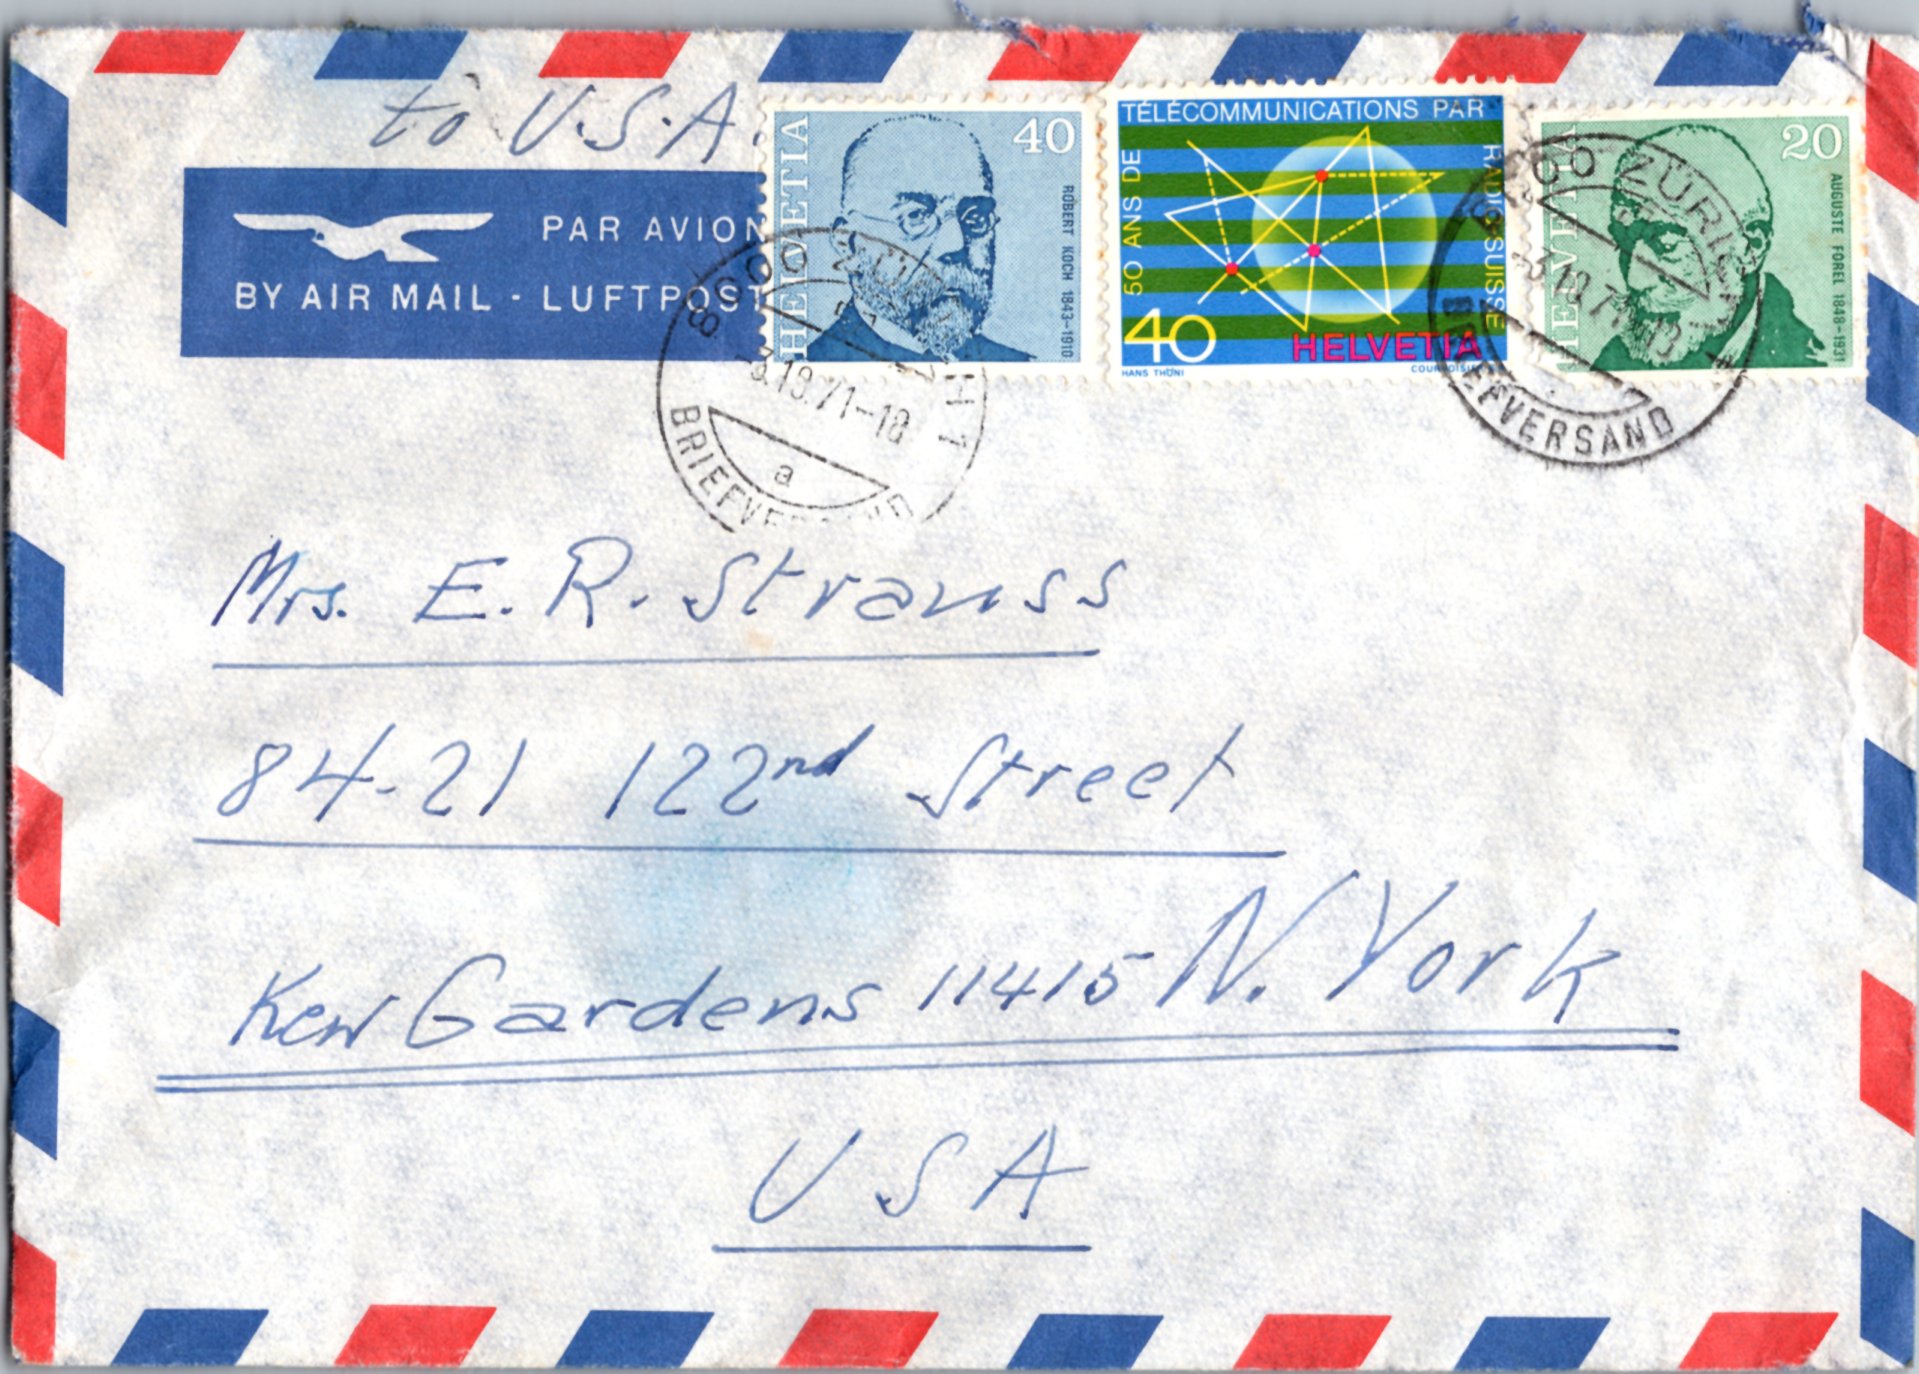 to U.S.A.
PAR AVION
BY AIR MAIL - LUFTPOST
HELVETIA
40
ROBERT KOCH 1843-1910
TÉLÉCOMMUNICATIONS PAR
RADIO SUISSE
50 ANS DE
40
HELVETIA
HANS THÖNI
COURVOISIER
HELVETIA
20
AUGUSTE FOREL 1848-1931
8000 ZÜRICH 1
71-18
a
BRIEFVERSAND
8000 ZÜRICH
BRIEFVERSAND
Mrs. E. R. Strauss
84-21 122nd Street
Kew Gardens 11415 N. York
USA